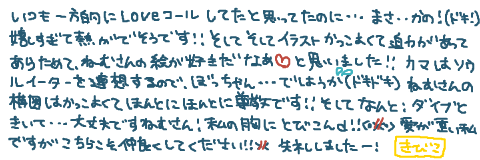 いつも一方的にLoveコールしてたと思ってたのに…まさ…かの!(ドキ!)
嬉しすぎて熱がでそうです!!そしてそしてイラストかっこよくて迫力があって
あらためて、ねむさんの絵が好きだなぁ♡と思いました!!カマはソウ
ルイーターを連想するので、ぼっちゃん…でしょうか(ドキドキ)ねむさんの
構図はかっこよくて、ほんとにほんとに尊敬です!!そしてなんと!ダイブと
きいて…大丈夫ですねむさん!私の胸にとびこんd!!愛が重い私
ですがこちらこそ仲良くしてください!!失礼しましたー!きびこ